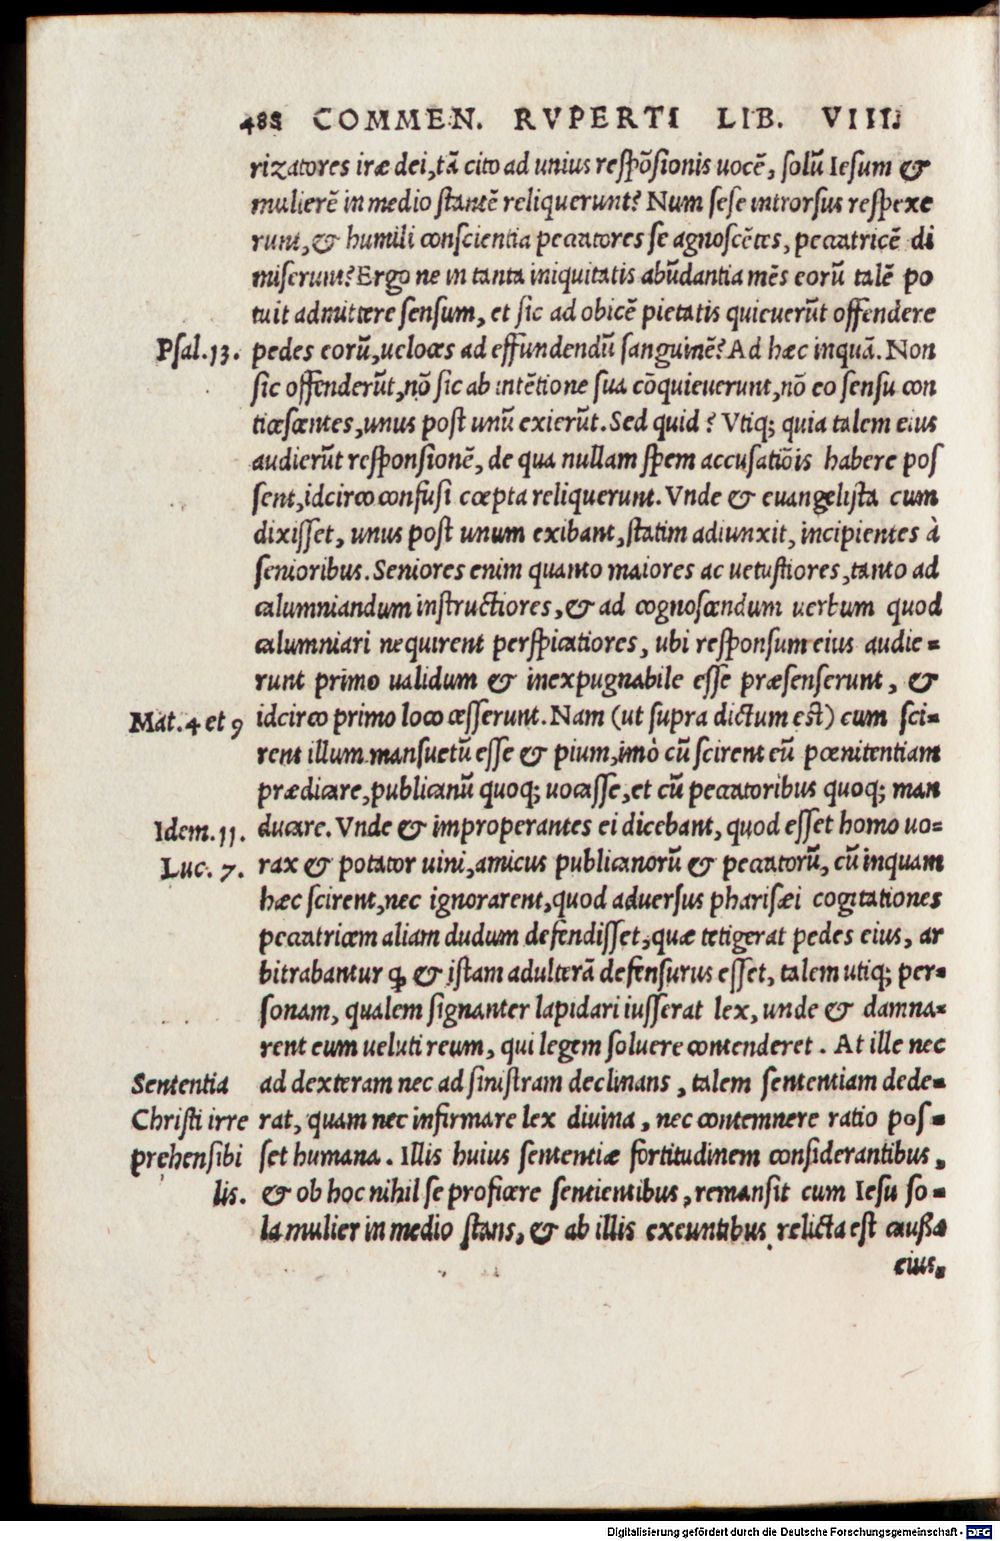 488 COMMEN. RVPERTI LIB. VIII.
rizatores iræ dei, tã cito ad unius respõsionis uocẽ, solũ Iesum &
mulierẽ in medio stantẽ reliquerunt? Num sese introrsus respexe
runt, & humili conscientia peccatores se agnoscẽtes, peccatricẽ di
miserunt? Ergo ne in tanta iniquitatis abũdantia mẽs eorũ talẽ po
tuit admittere sensum, et sic ad obicẽ pietatis quieuerũt offendere
Psal.13. pedes eorũ, ueloces ad effundendũ sanguinẽ? Ad hæc inquã. Non
sic offenderũt, nõ sic ab intẽtione sua cõquieuerunt, nõ eo sensu con
ticescentes, unus post unũ exierũt. Sed quid? Vtiq; quia talem eius
audierũt responsionẽ, de qua nullam spem accusatiõis habere pos
sent, idcirco confusi cœpta reliquerunt. Vnde & euangelista cum
dixisset, unus post unum exibant, statim adiunxit, incipientes à
senioribus. Seniores enim quanto maiores ac uetustiores, tanto ad
calumniandum instructiores, & ad cognoscendum uerbum quod
calumniari nequirent perspicatiores, ubi responsum eius audie-
runt primo ualidum & inexpugnabile esse præsenserunt, &
Mat.4 et 9 idcirco primo loco cesserunt. Nam (ut supra dictum est) cum sci-
rent illum mansuetũ esse & pium, imò cũ scirent eũ pœnitentiam
prædicare, publicanũ quoq; uocasse, et cũ peccatoribus quoq; man
Idem.11. ducare. Vnde & improperantes ei dicebant, quod esset homo uo-
Luc. 7. rax & potator uini, amicus publicanorũ & peccatorũ, cũ inquam
hæc scirent, nec ignorarent, quod aduersus pharisæi cogitationes
peccatricem aliam dudum defendisset, quæ tetigerat pedes eius, ar
bitrabantur ꝙ & istam adulterã defensurus esset, talem utiq; per-
sonam, qualem signanter lapidari iusserat lex, unde & damna-
rent eum ueluti reum, qui legem soluere contenderet. At ille nec
Sententia ad dexteram nec ad sinistram declinans, talem sententiam dede-
Christi irre rat, quam nec infirmare lex diuina, nec contemnere ratio pos-
prehensibi set humana. Illis huius sententiæ fortitudinem considerantibus,
lis. & ob hoc nihil se proficere sentientibus, remansit cum Iesu so-
la mulier in medio stans, & ab illis exeuntibus relicta est caußa
eius.
Digitalisierung gefördert durch die Deutsche Forschungsgemeinschaft - DFG